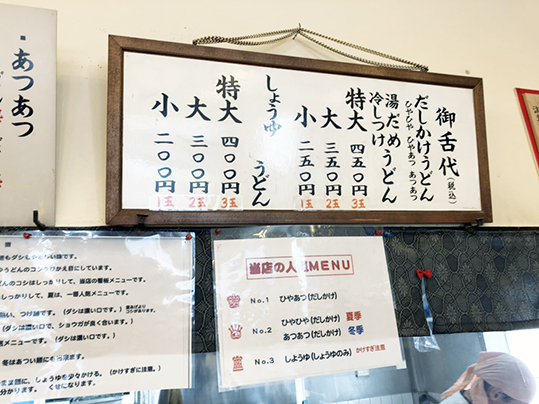 御舌代(税込)
だしかけうどん
ひやひや ひやあつ あつあつ
湯だめうどん
冷しつけ
特大 四五〇円 3玉
大 三五〇円 2玉
小 二五〇円 1玉
しょうゆうどん
特大 四〇〇円 3玉
大 三〇〇円 2玉
小 二〇〇円 1玉
あつあつ
当店の人気MENU
No.1 ひやあつ(だしかけ)
No.2 ひやひや(だしかけ) 夏季
あつあつ(だしかけ) 冬季
No.3 しょうゆ(しょうゆのみ) かけすぎ注意
うどんのコシがわかえ目にしています。
のコシはしっかり、当店の看板メニューです。
しっかりして、夏は、一番人気メニューです。
(ダシは濃い口で、ショウガが良く合います。)
(ダシは濃い口です。)
に、しょうゆを少々かける。(かけすぎに注意。)
分かります。 くせになります。